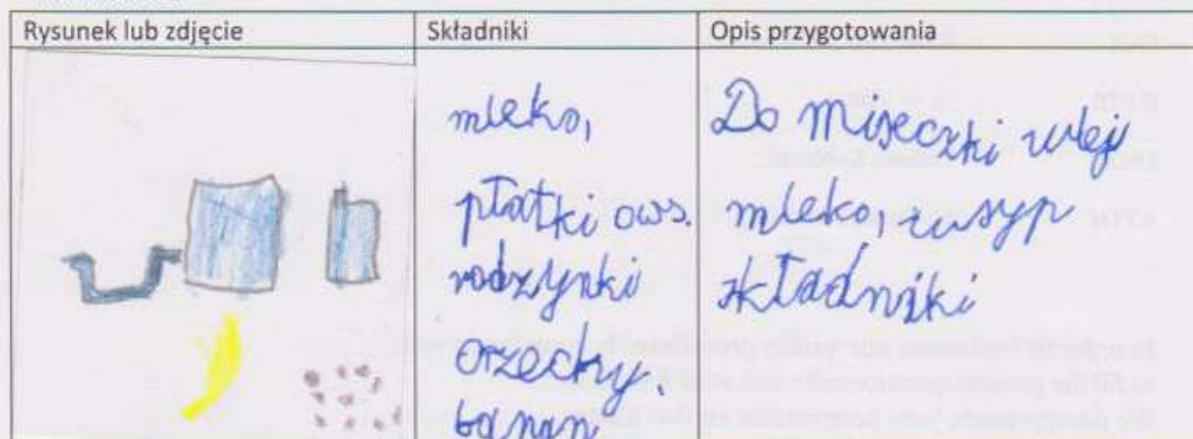 Rysunek lub zdjęcie
Składniki
Opis przygotowania
mleko,
płatki ows.
rodzynki
orzechy.
banan
Do miseczki wlej
mleko, wsyp
składniki